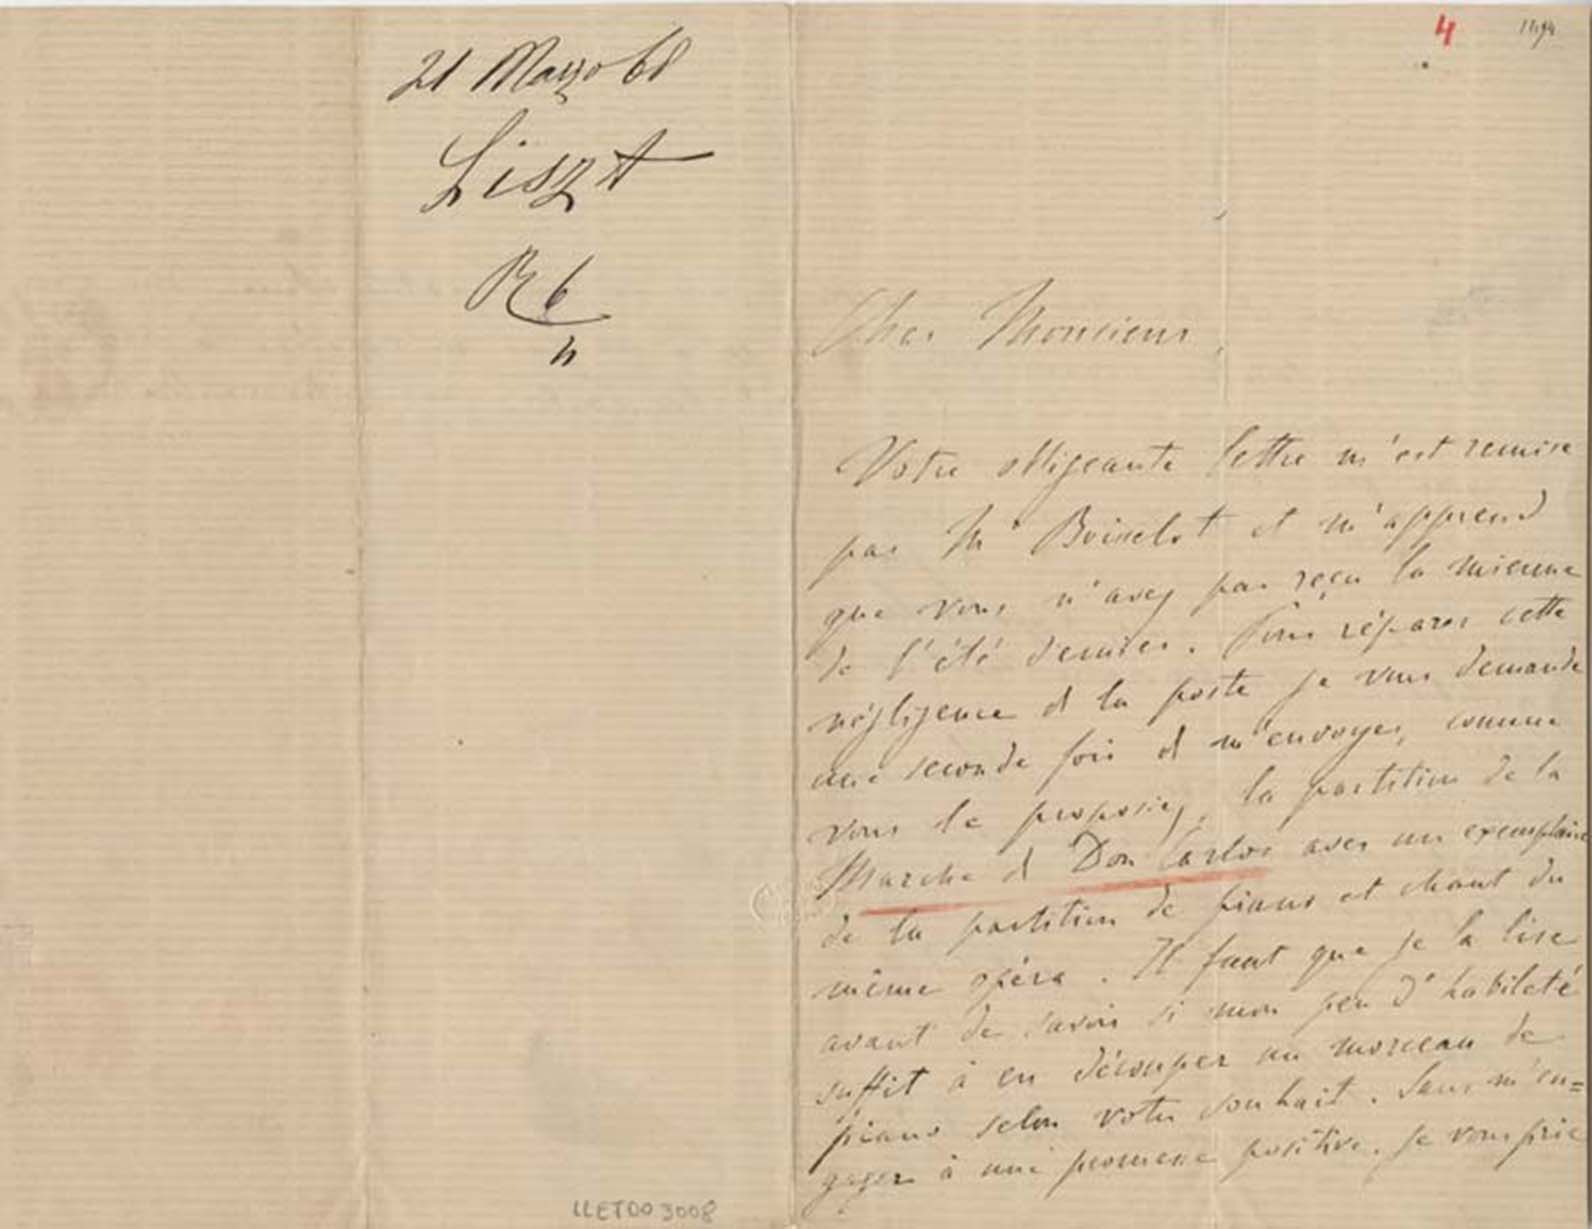 21 Marzo 68
Liszt
R 6
4
4
Cher Monsieur,
Votre obligeante lettre m'est remise
par Mr Boisselot et m'apprend
que vous n'avez pas reçu la mienne
de l'été dernier. Pour réparer cette
négligence de la poste je vous demande
une seconde fois de m'envoyer, comme
vous le proposiez, la partition de la
Marche de Don Carlos avec un exemplaire
de la partition de piano et chant du
même opéra. Il faut que je la lise
avant de savoir si mon peu d'habileté
suffit à en découper un morceau de
piano selon votre souhait. Sans m'en=
gager à une promesse positive, je vous prie
LLET003008